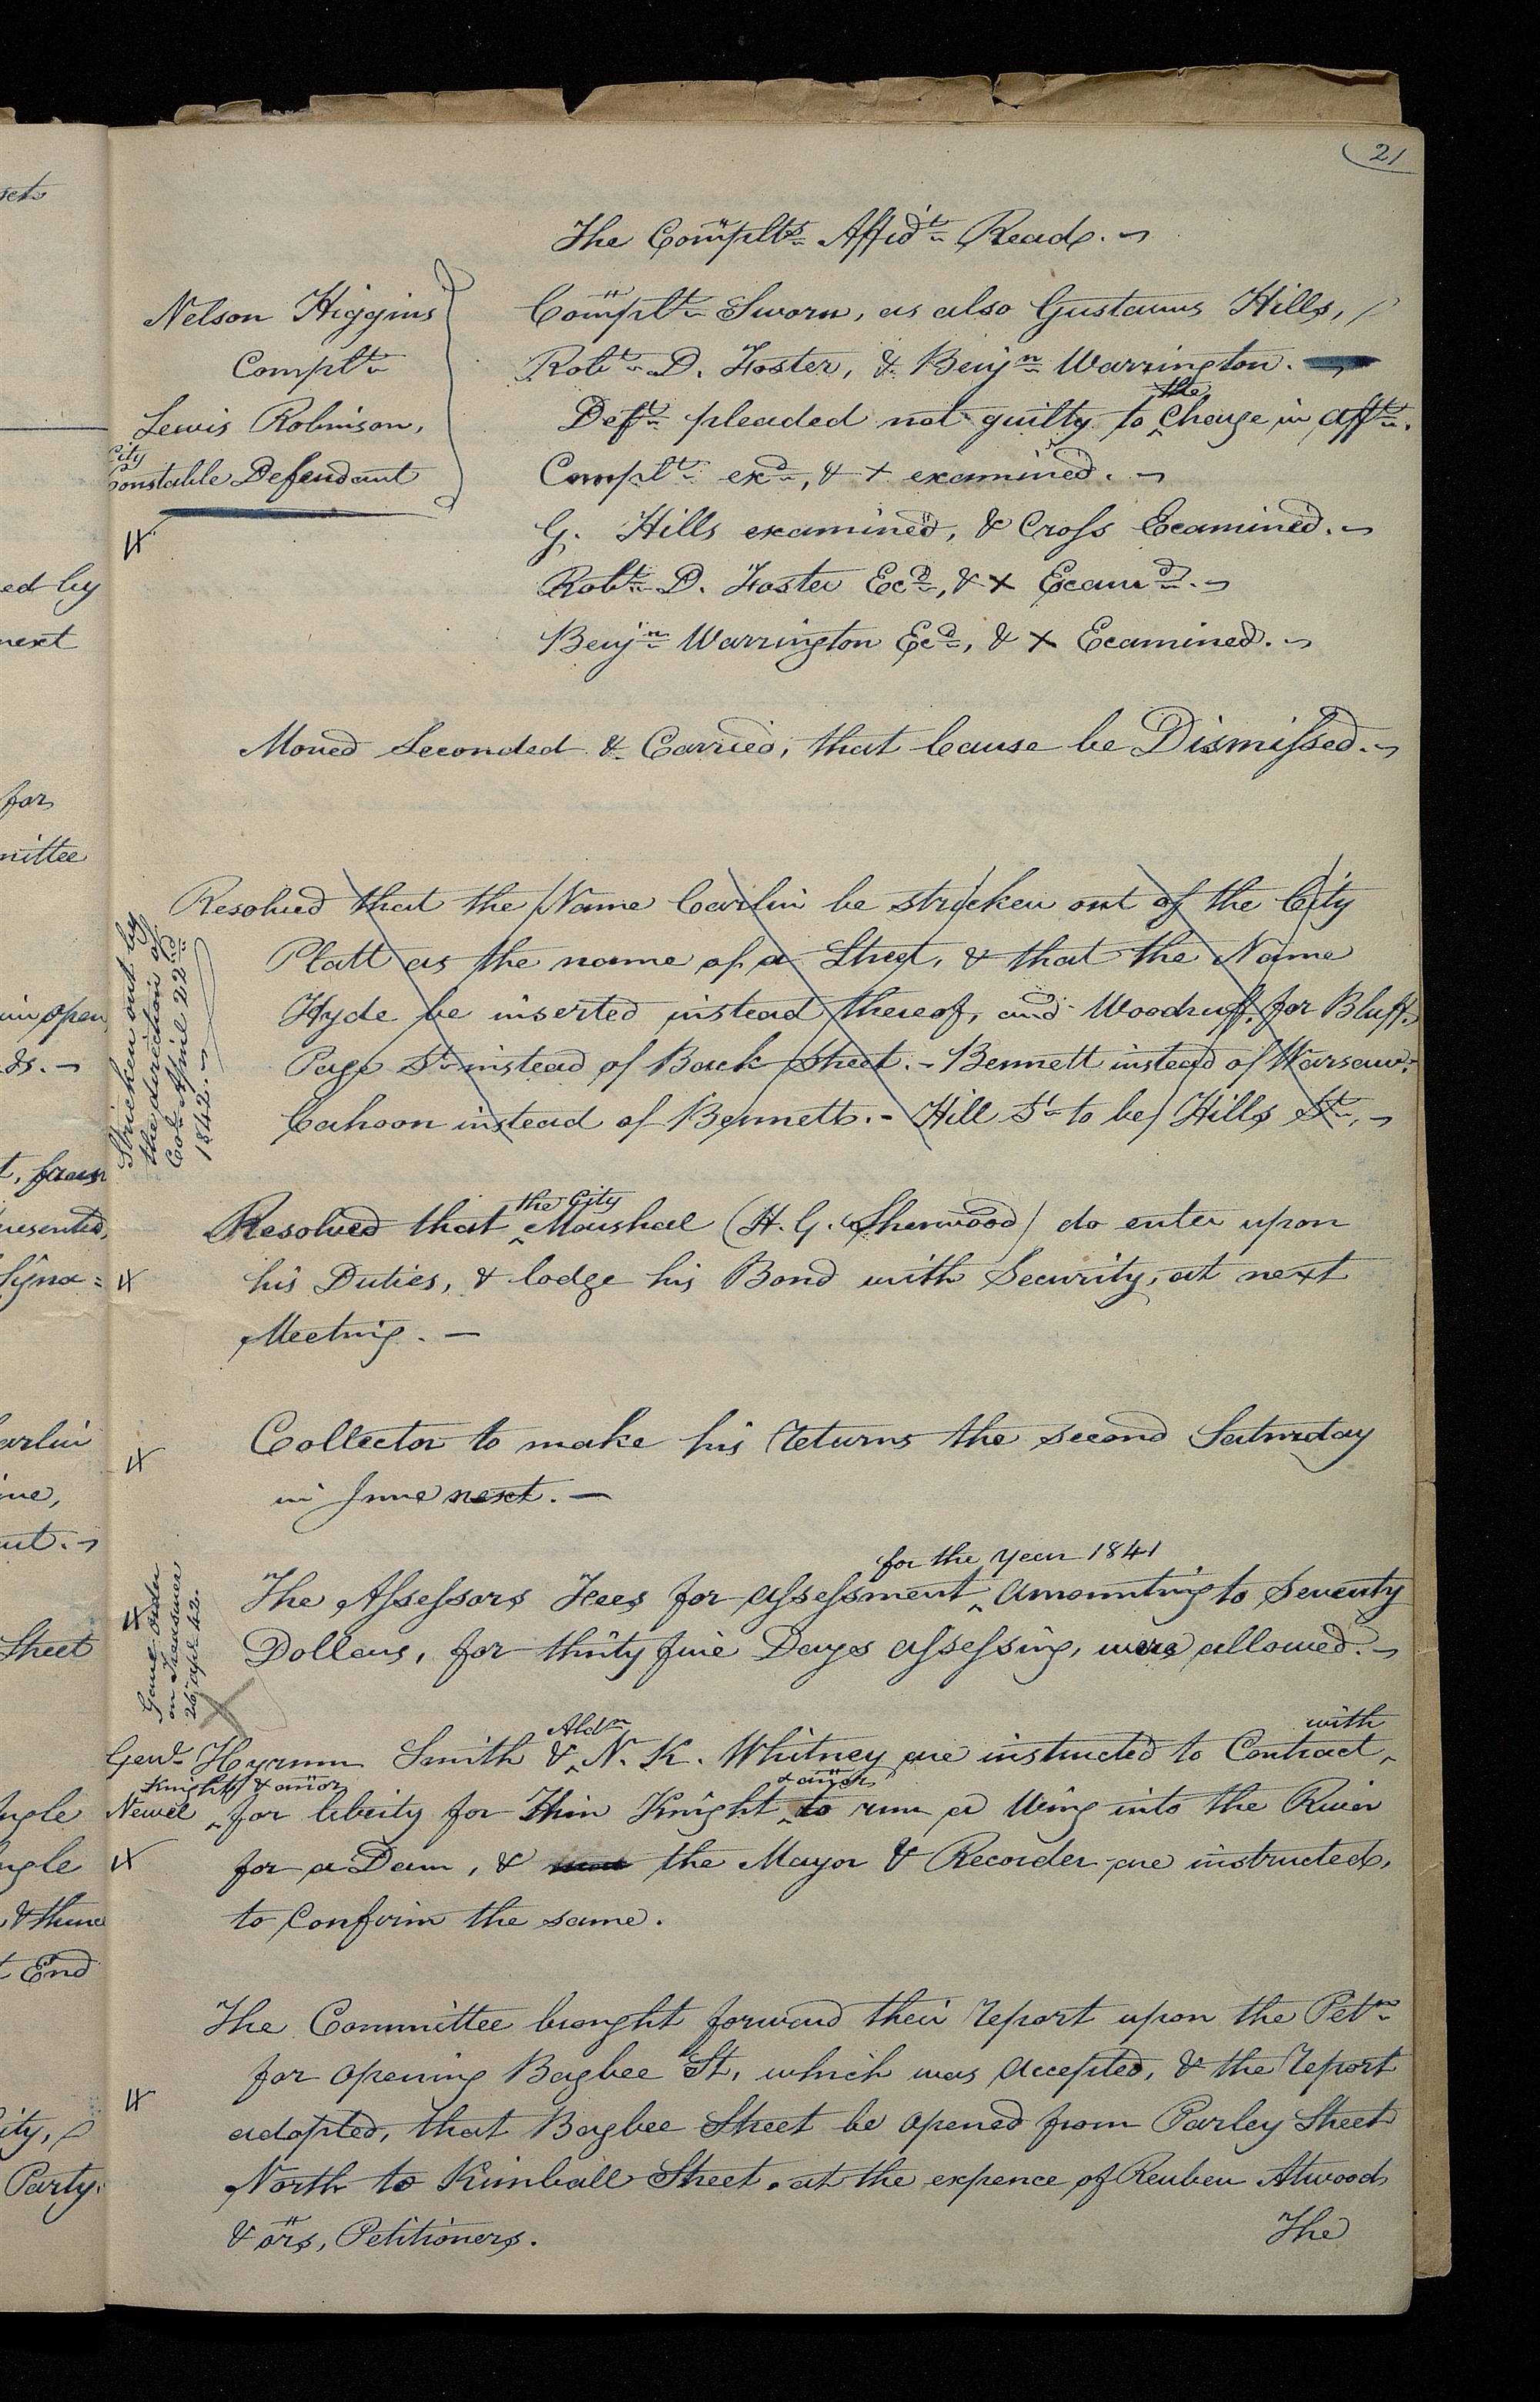 21
The Complts. Affidt. Read.
Nelson Higgins
Complt.
Lewis Robinson,
City
Constable Defendant
Complt. Sworn, as also Gustavus Hills,
Robt. D. Foster, & Benjn. Warrington.
the
Deft. pleaded not guilty to Charge in afft.
Complt. exd., & + examined.
G. Hills examined, & Cross Examined.
Robt. D. Foster Exd., & + Examd.
Benjn. Warrington Exd., & + Examined.
Moved Seconded & Carried, that Cause be Dismissed.
Stricken out by
the direction of
Col. April 22nd.
1842.
Resolved that the Name Carlin be stricken out of the City
Platt as the name of a Street, & that the Name
Hyde be inserted instead thereof, and Woodruff, for Bluff.
Page St. instead of Back Street. - Bennett instead of Warsaw.
Cahoon instead of Bennett. - Hill St. to be Hills St.
the City
Resolved that Marshal (H. G. Sherwood) do enter upon
his Duties, & lodge his Bond with Security, at next
Meeting. —
Collector to make his returns the second Saturday
in June next. —
for the year 1841
The Assessors Fees for assessment, amounting to Seventy
Dollars, for thirty five Days assessing, were allowed.
Gave order
on Treasurer
26 apl. 42.
Aldn with
Genl. Hyrum Smith & N. K. Whitney are instructed to Contract
Knight & anor & anor
Newel for liberty for Knight to run a Wing into the River
for a Dam, & the Mayor & Recorder are instructed,
to confirm the same.
The Committee brought forward their report upon the Petn.
for opening Bagbee St, which was accepted, & the report
adopted, that Bagbee Street be opened from Parley Street
North to Kimball Street, at the expence of Reuben Atwood
& ors, Petitioners.
The